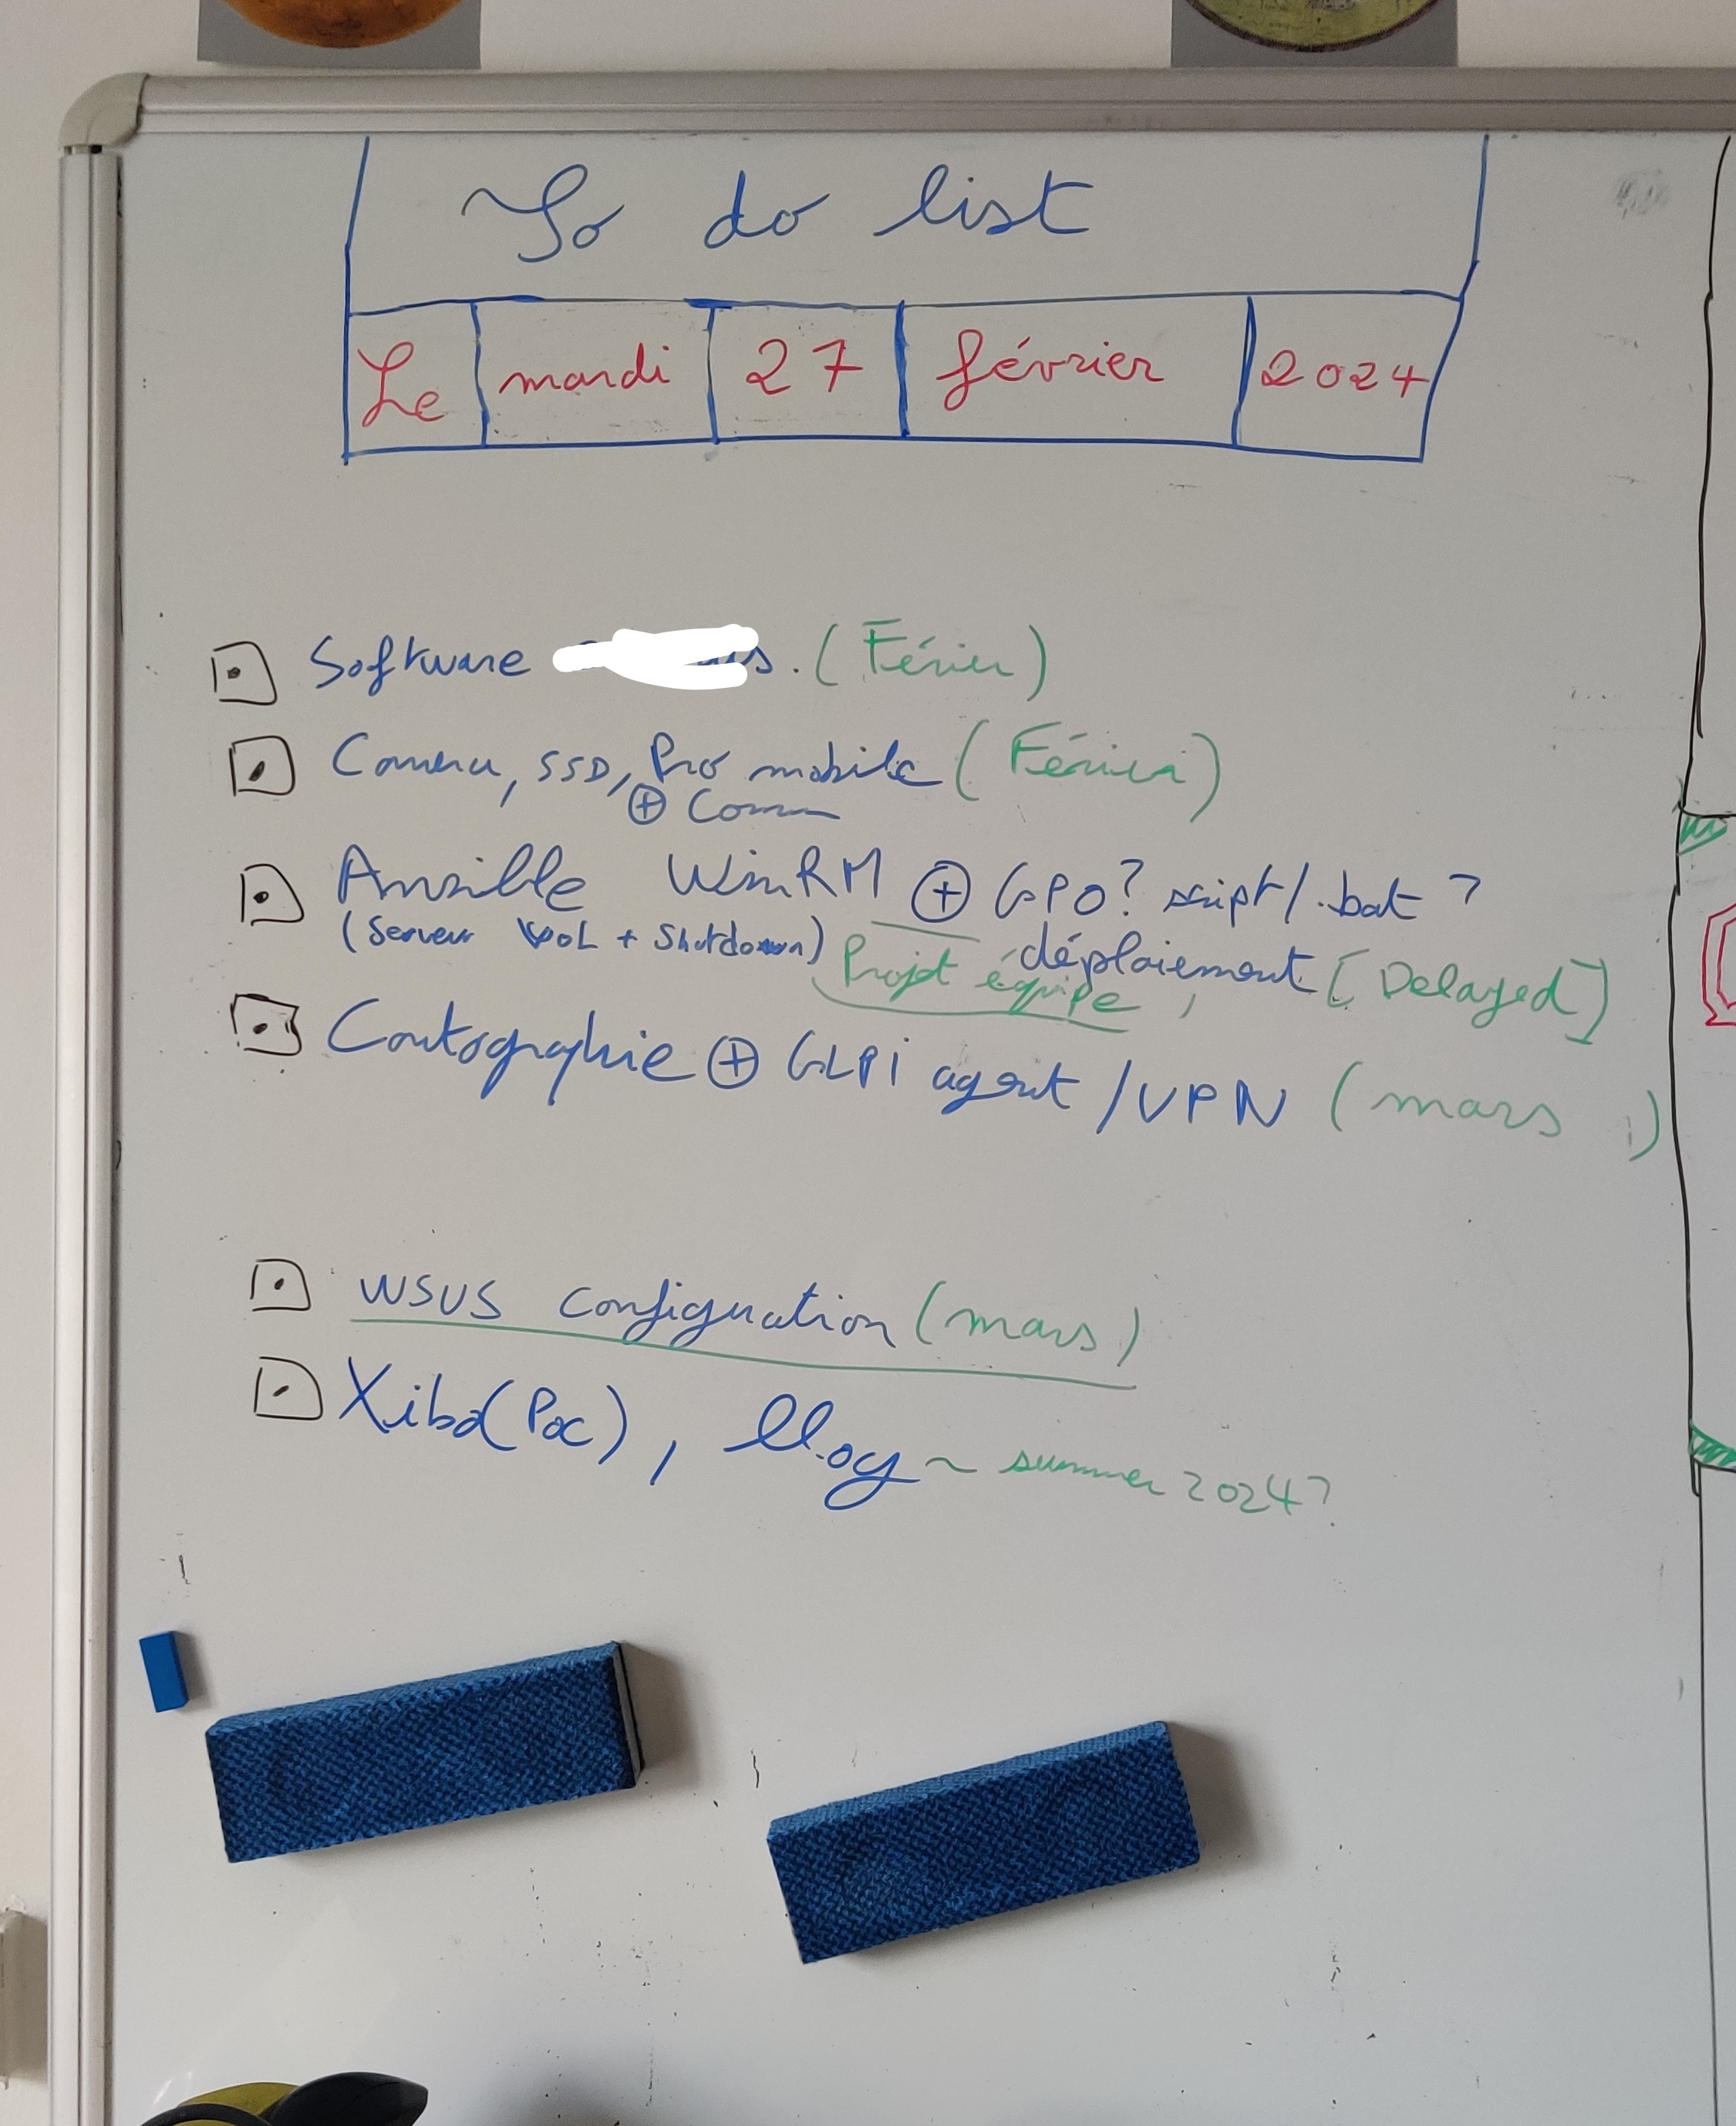 To do list
Le mardi 27 février 2024
Software (Février)
Camera, SSD, Pro mobile (Février)
⊕ Comm
Ansible WinRM ⊕ GPO? script/.bat ?
(Serveur WoL + Shutdown) Projet équipe, déploiement [Delayed]
Cartographie ⊕ GLPi agent / VPN (mars )
WSUS configuration (mars)
Xibo (Poc), ~ summer 2024?